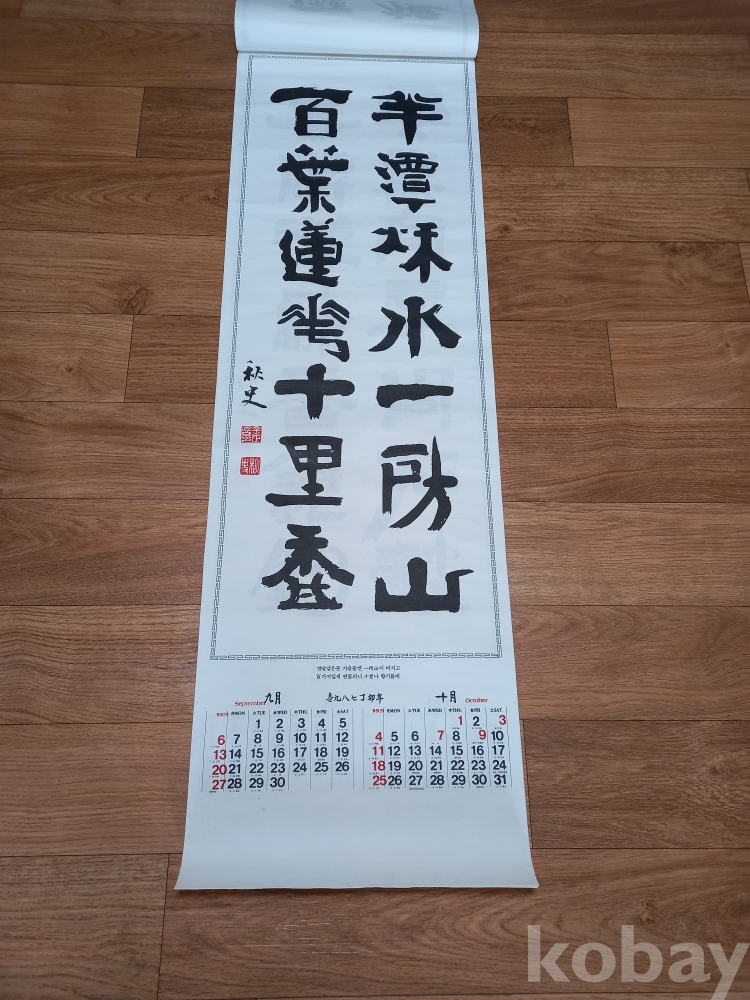 半潭秋水一房山
百葉蓮花十里香
秋史
반달같은못 가을물엔 一房山이 비치고
百가지잎새 연꽃피니 十里나 향기롭네
September 九月
一九八七丁卯年
十月 October
日SUN 月MON 火TUE 水WED 木THU 金FRI 土SAT
1 2 3 4 5
6 7 8 9 10 11 12
13 14 15 16 17 18 19
20 21 22 23 24 25 26
27 28 29 30
日SUN 月MON 火TUE 水WED 木THU 金FRI 土SAT
1 2 3
4 5 6 7 8 9 10
11 12 13 14 15 16 17
18 19 20 21 22 23 24
25 26 27 28 29 30 31
kobay